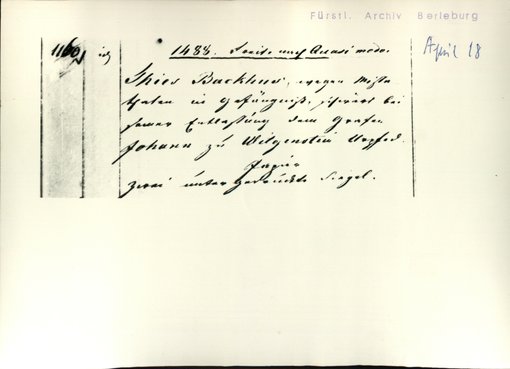 Fürstl. Archiv Berleburg
April 18
1160
1488. Freit. nach Quasimodo.
Thies Backhus, wegen Misse
thaten im Gefängniß, schwört bei
seiner Entlaßung dem Grafen
Johann zu Witgenstein Urfed.
Papier
zwei unter gedrückte Siegel.